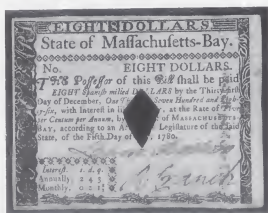 EIGHT DOLLARS
State of Maſſachuſetts-Bay.
No. EIGHT DOLLARS.
THE Poſſeſſor of this Bill ſhall be paid
EIGHT Spaniſh milled DOLLARS by the Thirty-firſt
Day of December, One Thouſand Seven Hundred and Eigh-
ty-ſix, with Intereſt in like Money, at the Rate of Five
per Centum per Annum, by the State of MASSACHUSETTS-
BAY, according to an Act of the Legiſlature of the ſaid
State, of the Fifth Day of May, 1780.
Intereſt. s. d. q.
Annually. 2 4 3
Monthly. 0 2 1